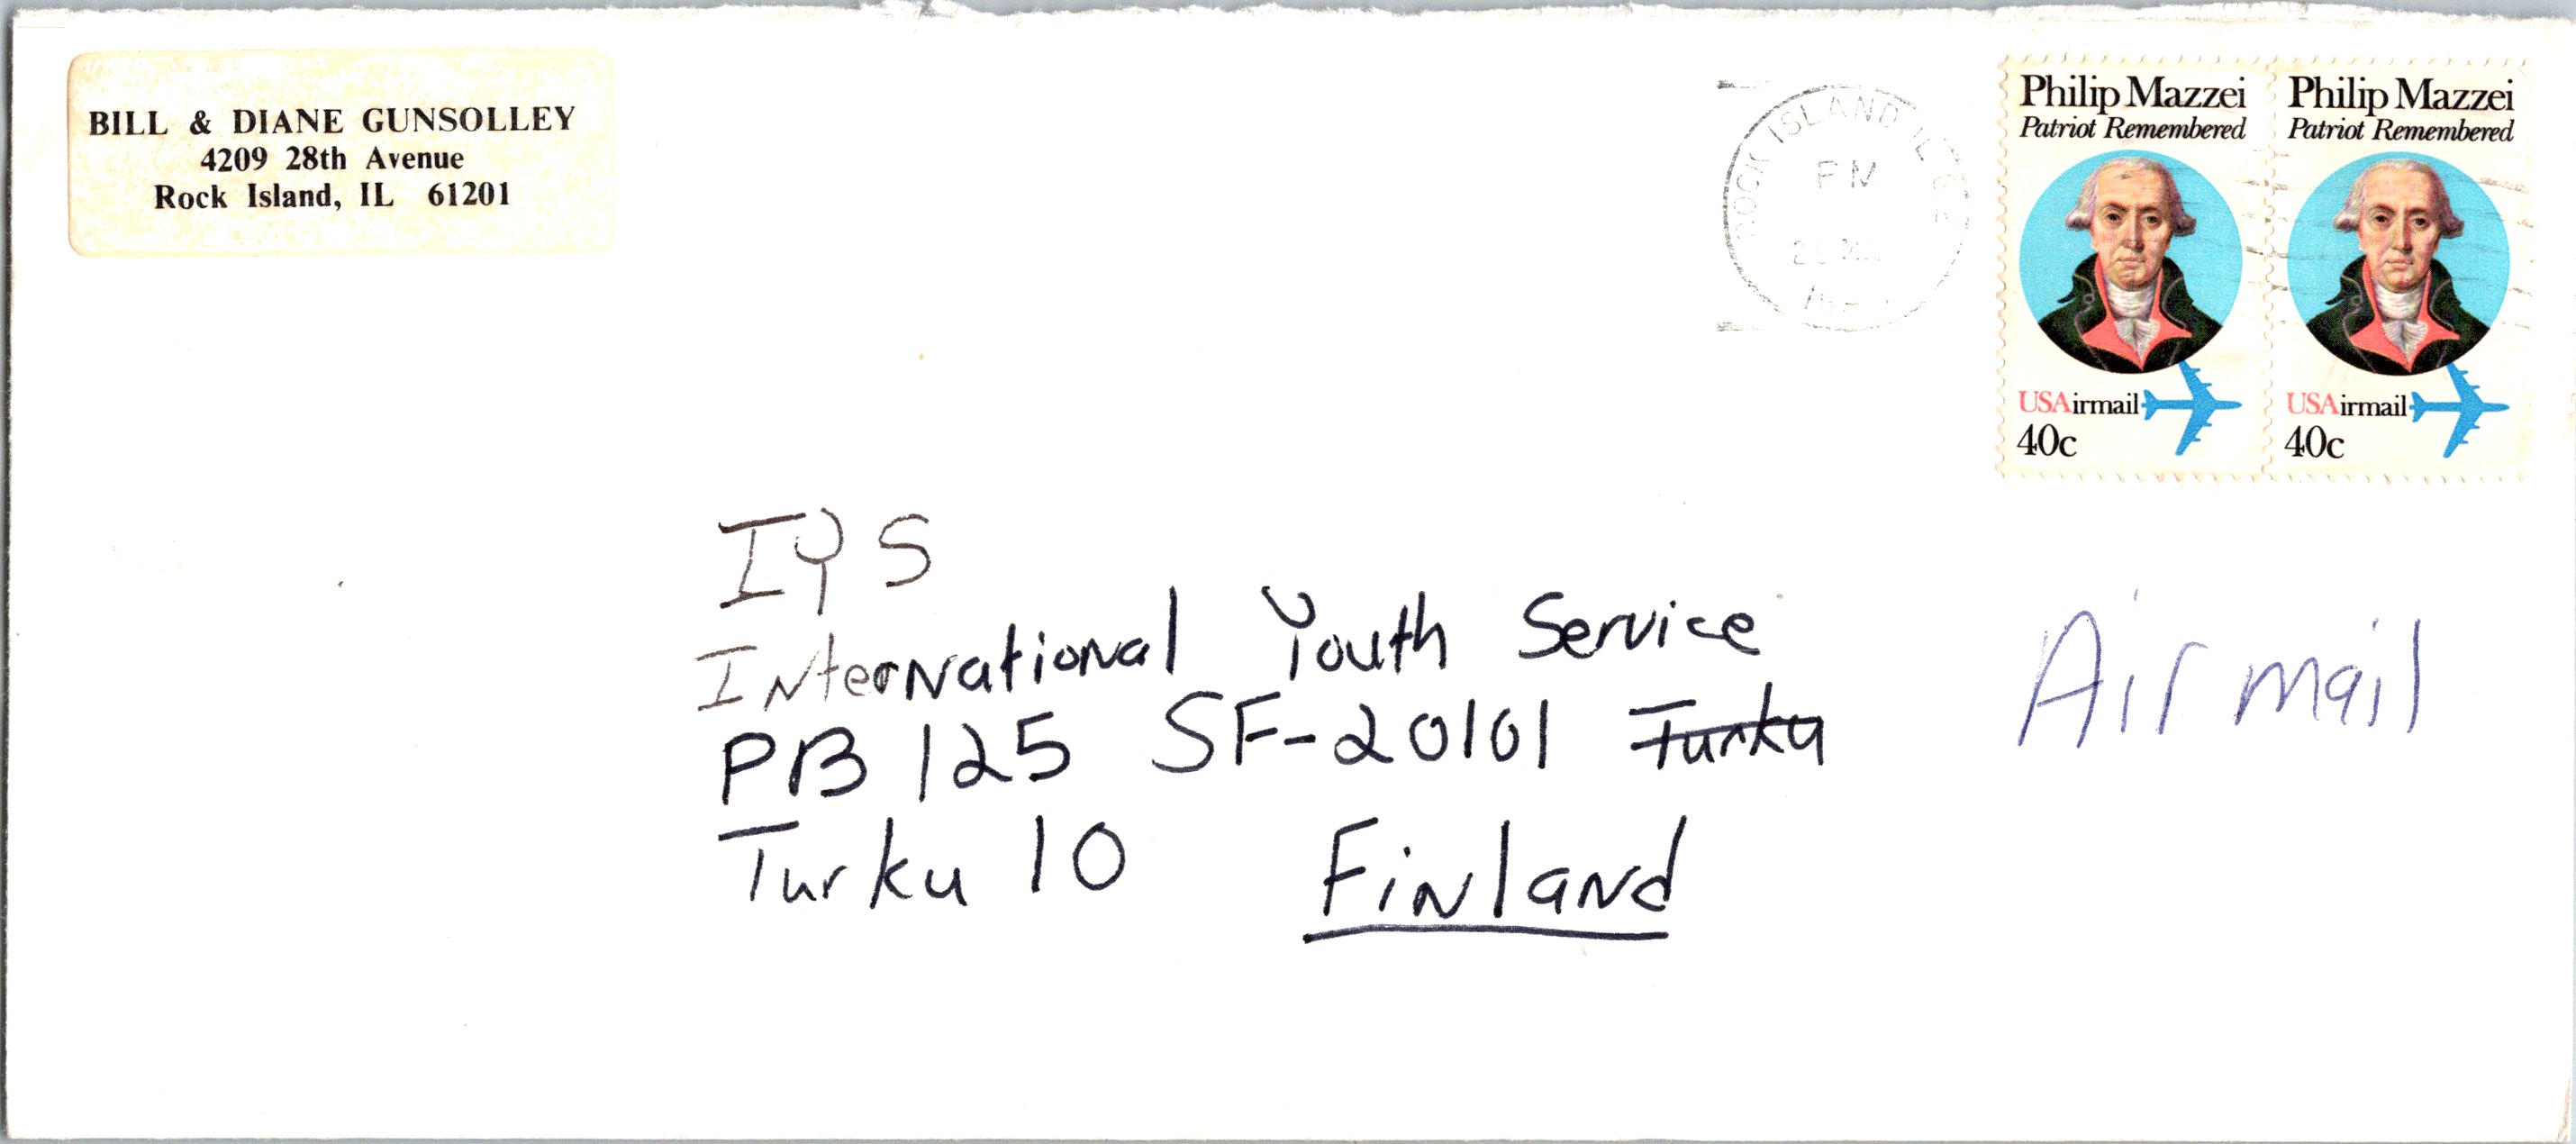 BILL & DIANE GUNSOLLEY
4209 28th Avenue
Rock Island, IL 61201
ROCK ISLAND IL
PM
Philip Mazzei
Patriot Remembered
USAirmail
40c
Philip Mazzei
Patriot Remembered
USAirmail
40c
IYS
International Youth Service
PB 125 SF-20101 Turku
Turku 10 Finland
Air mail